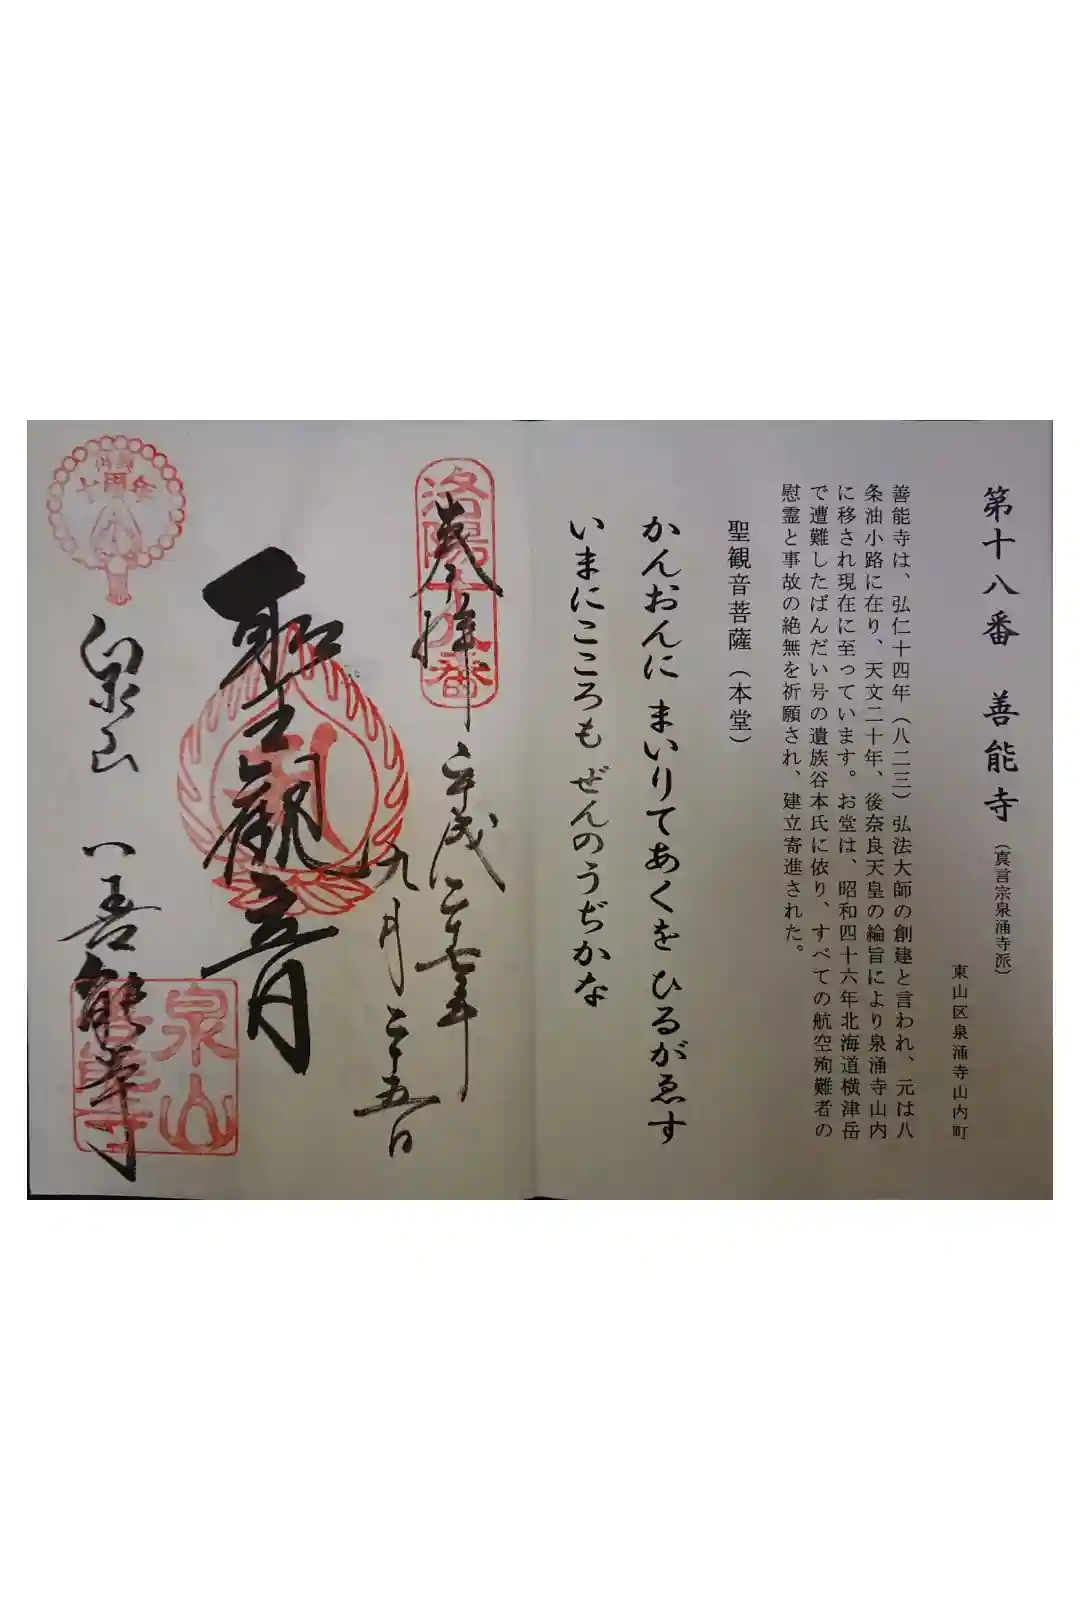 第十八番 善能寺（真言宗泉涌寺派）
東山区泉涌寺山内町
善能寺は、弘仁十四年（八二三）弘法大師の創建と言われ、元は八
条油小路に在り、天文二十年、後奈良天皇の綸旨により泉涌寺山内
に移され現在に至っています。お堂は、昭和四十六年北海道横津岳
で遭難したばんだい号の遺族谷本氏に依り、すべての航空殉難者の
慰霊と事故の絶無を祈願され、建立寄進された。
聖観音菩薩（本堂）
かんおんに まいりてあくを ひるがゑす
いまにこころも ぜんのうぢかな
洛陽十八番
奉拝 平成二十七年
九月二十五日
聖観音
泉山 善能寺
泉山
善能寺
十周年